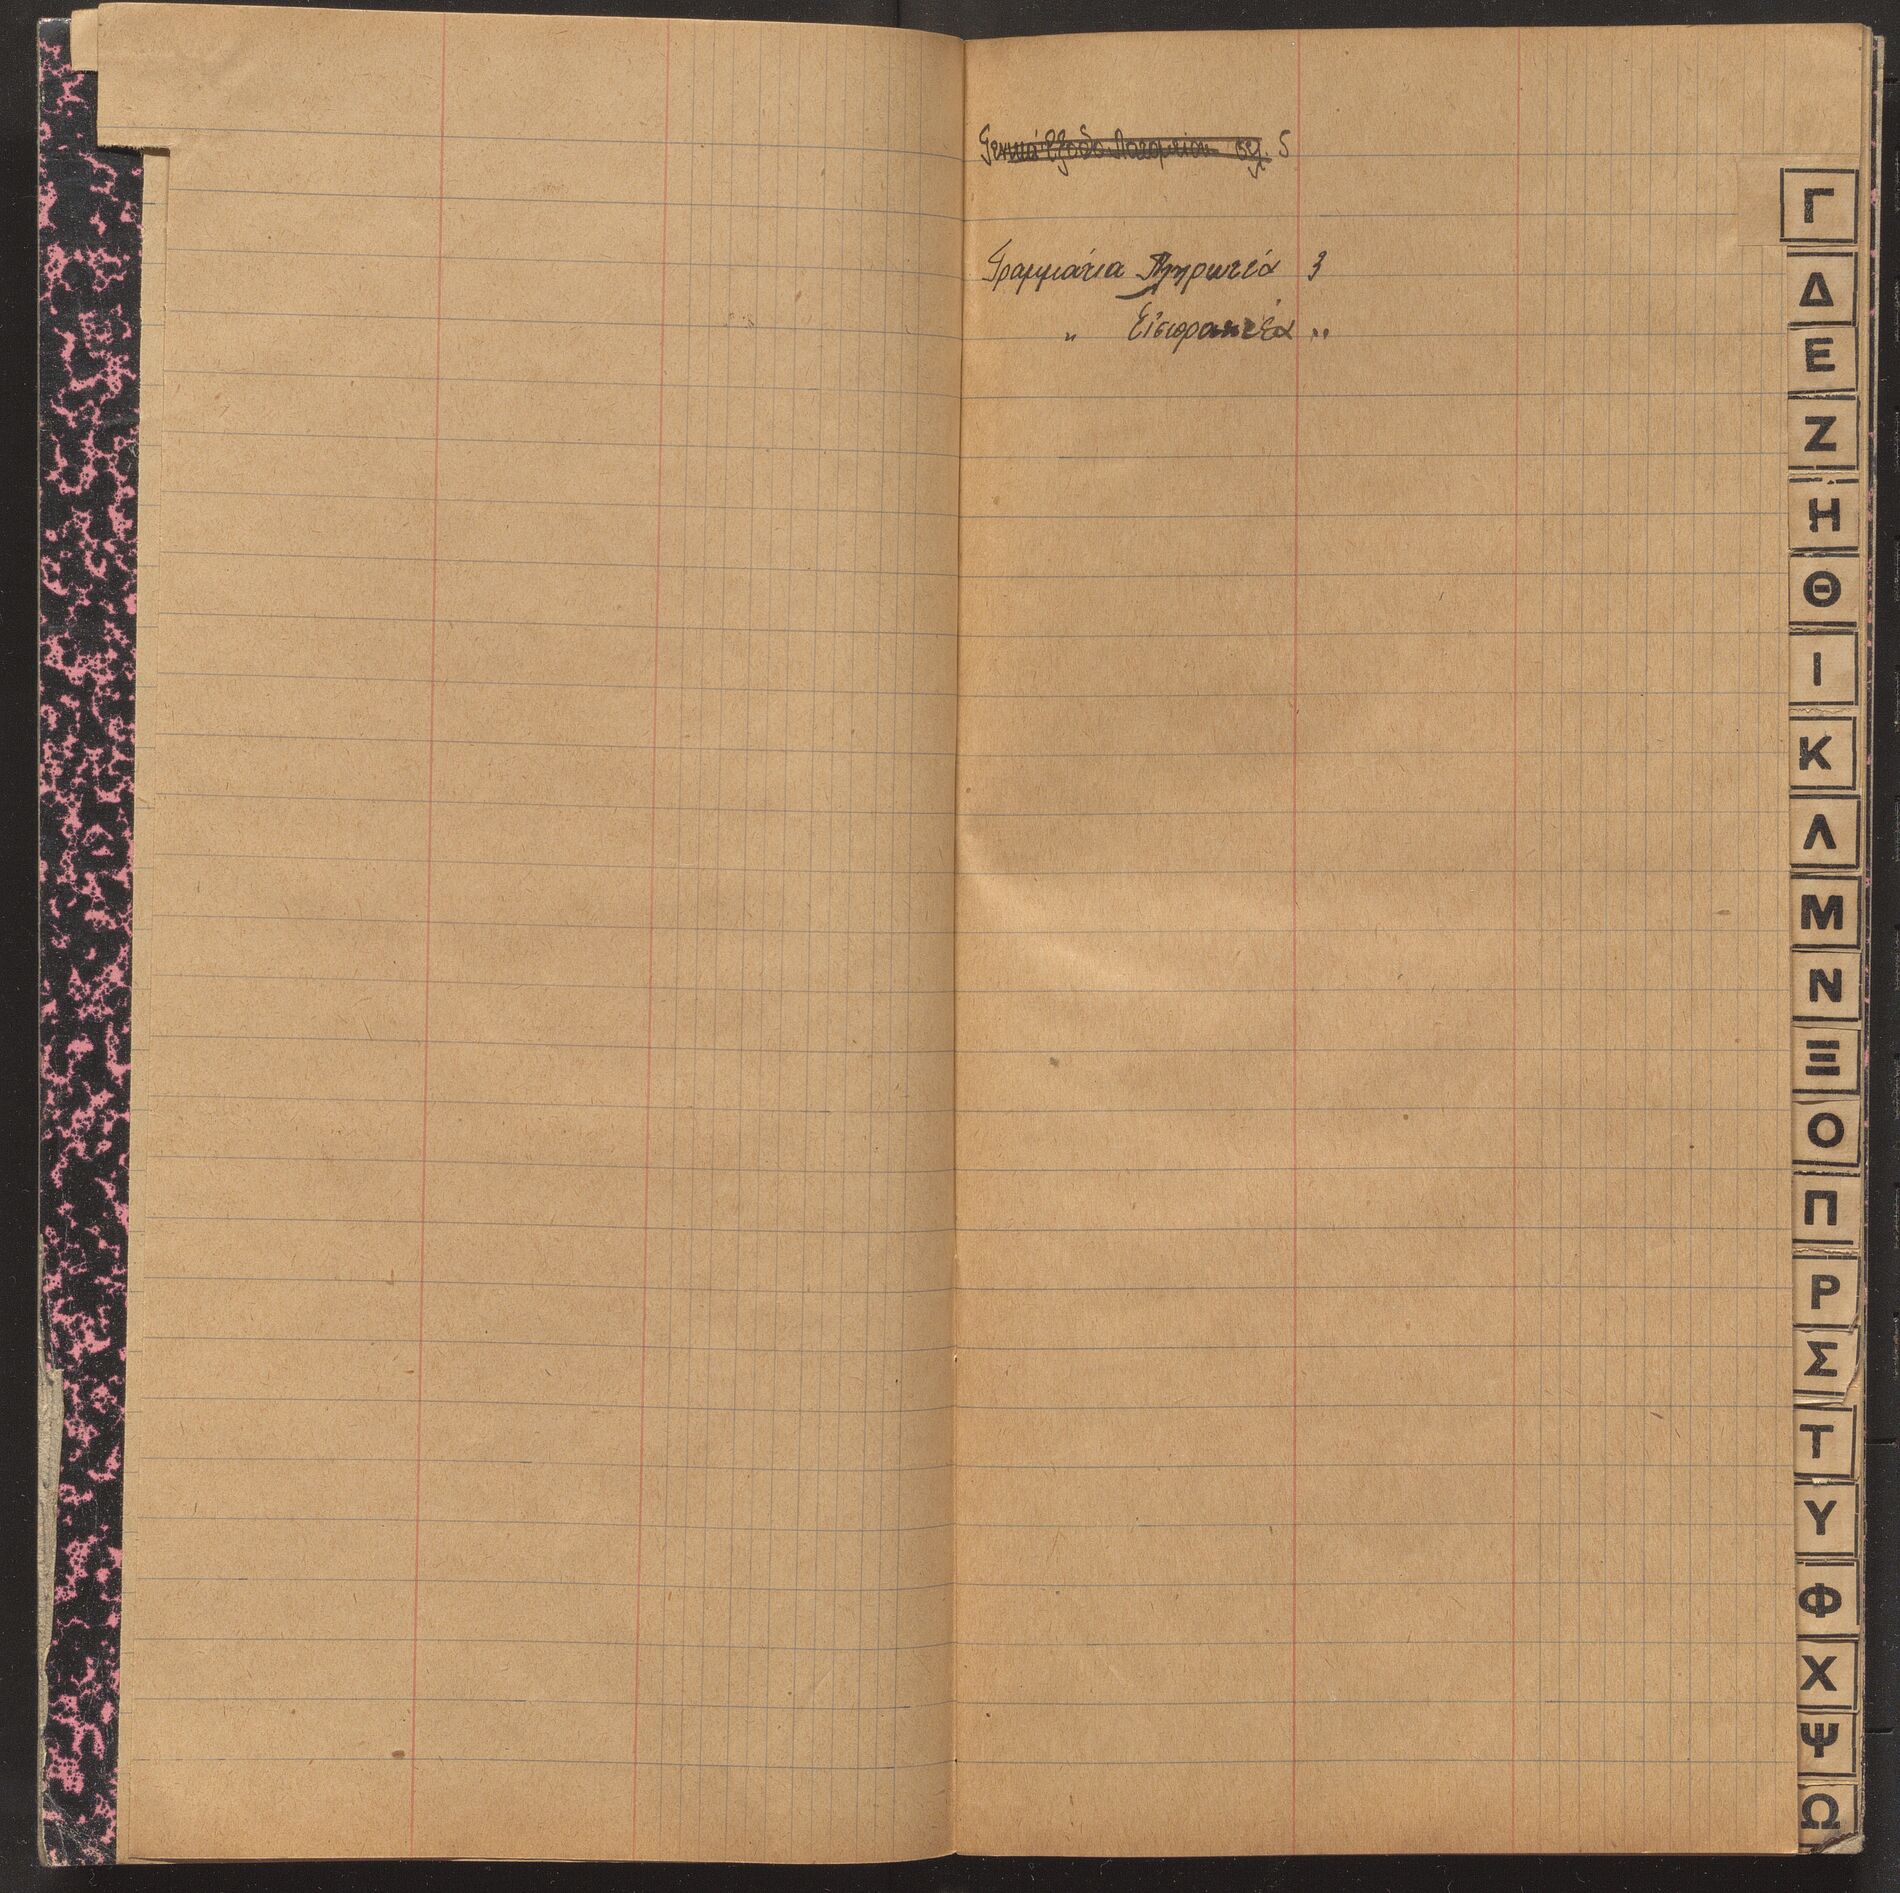 Γενικά Έξοδα Λατομείου σελ. 5
Γραμμάτια Πληρωτέα 3
„ Εἰσπρακτέα „
Γ
Δ
Ε
Ζ
Η
Θ
Ι
Κ
Λ
Μ
Ν
Ξ
Ο
Π
Ρ
Σ
Τ
Υ
Φ
Χ
Ψ
Ω